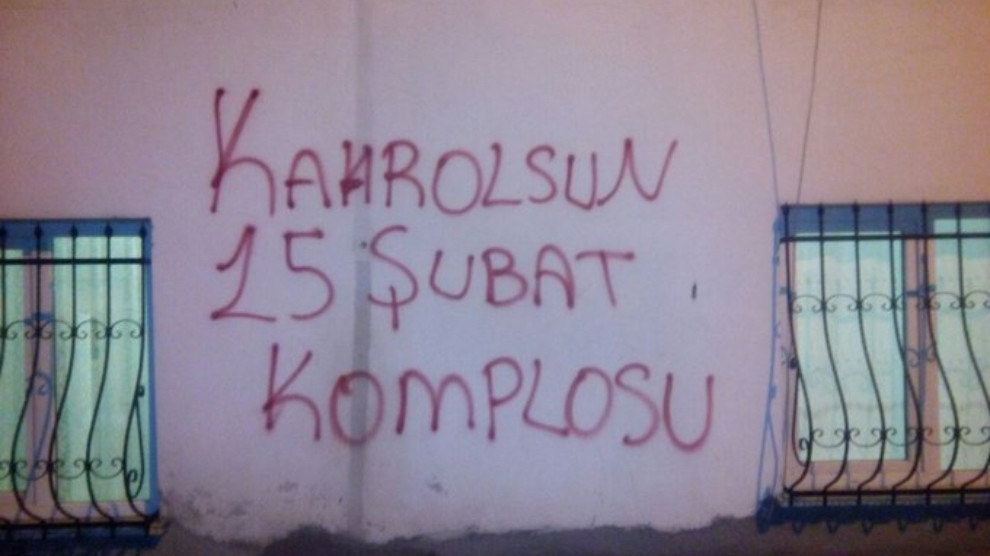 KAHROLSUN
15 ŞUBAT
KOMPLOSU